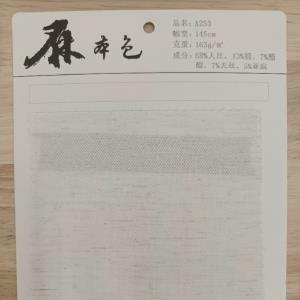 麻本色
品名：A253
幅宽：145cm
克重：163g/㎡
成分：68%人丝，13%棉，7%醋
酸，7%天丝，5%亚麻